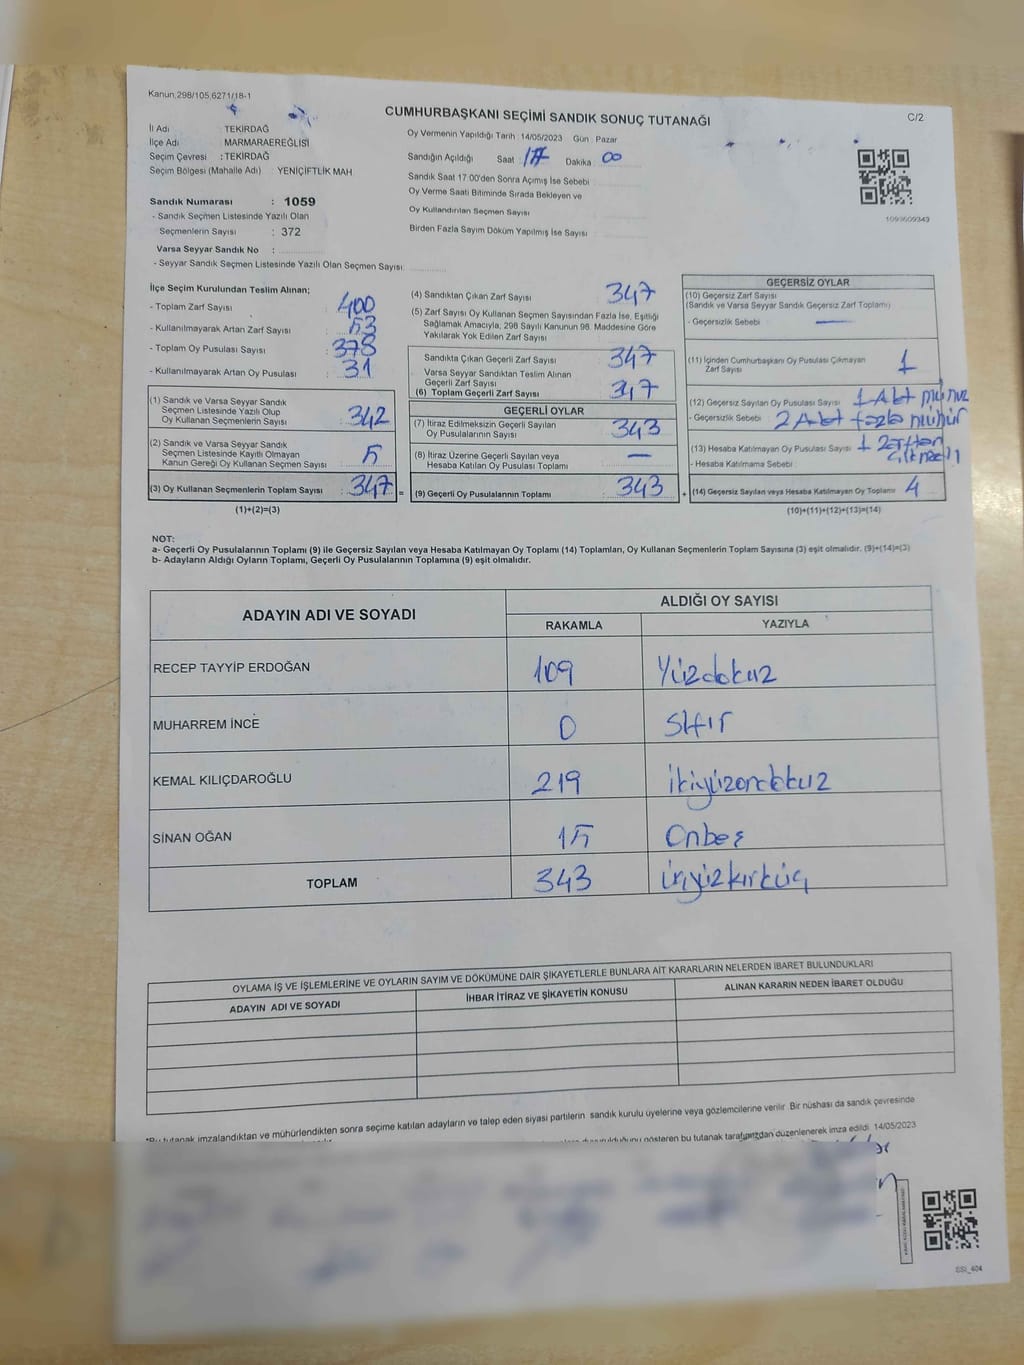 Kanun,298/105,6271/18-1
CUMHURBAŞKANI SEÇİMİ SANDIK SONUÇ TUTANAĞI
C/2
İl Adı TEKİRDAĞ
İlçe Adı MARMARAEREĞLİSİ
Seçim Çevresi : TEKİRDAĞ
Seçim Bölgesi (Mahalle Adı) YENİÇİFTLİK MAH
Sandık Numarası : 1059
- Sandık Seçmen Listesinde Yazılı Olan
Seçmenlerin Sayısı : 372
Varsa Seyyar Sandık No :
- Seyyar Sandık Seçmen Listesinde Yazılı Olan Seçmen Sayısı:
Oy Vermenin Yapıldığı Tarih : 14/05/2023 Gün : Pazar
Sandığın Açıldığı Saat : 17 Dakika : 00
Sandık Saat 17.00'den Sonra Açımış İse Sebebi
Oy Verme Saati Bitiminde Sırada Bekleyen ve
Oy Kullandırılan Seçmen Sayısı
Birden Fazla Sayım Döküm Yapılmış İse Sayısı :
1093609343
İlçe Seçim Kurulundan Teslim Alınan;
- Toplam Zarf Sayısı : 400
- Kullanılmayarak Artan Zarf Sayısı : 53
- Toplam Oy Pusulası Sayısı : 378
- Kullanılmayarak Artan Oy Pusulası : 31
(1) Sandık ve Varsa Seyyar Sandık
Seçmen Listesinde Yazılı Olup
Oy Kullanan Seçmenlerin Sayısı : 342
(2) Sandık ve Varsa Seyyar Sandık
Seçmen Listesinde Kayıtlı Olmayan
Kanun Gereği Oy Kullanan Seçmen Sayısı : 5
(3) Oy Kullanan Seçmenlerin Toplam Sayısı : 347 =
(1)+(2)=(3)
(4) Sandıktan Çıkan Zarf Sayısı : 347
(5) Zarf Sayısı Oy Kullanan Seçmen Sayısından Fazla İse, Eşitliği
Sağlamak Amacıyla, 298 Sayılı Kanunun 98. Maddesine Göre
Yakılarak Yok Edilen Zarf Sayısı
Sandıkta Çıkan Geçerli Zarf Sayısı : 347
Varsa Seyyar Sandıktan Teslim Alınan
Geçerli Zarf Sayısı
(6) Toplam Geçerli Zarf Sayısı : 347
GEÇERLİ OYLAR
(7) İtiraz Edilmeksizin Geçerli Sayılan
Oy Pusulalarının Sayısı : 343
(8) İtiraz Üzerine Geçerli Sayılan veya
Hesaba Katılan Oy Pusulası Toplamı : —
(9) Geçerli Oy Pusulalarının Toplamı : 343 +
GEÇERSİZ OYLAR
(10) Geçersiz Zarf Sayısı
(Sandık ve Varsa Seyyar Sandık Geçersiz Zarf Toplamı)
- Geçersizlik Sebebi : —
(11) İçinden Cumhurbaşkanı Oy Pusulası Çıkmayan
Zarf Sayısı : 1
(12) Geçersiz Sayılan Oy Pusulası Sayısı : 1 Adt
- Geçersizlik Sebebi : 2 Adt fazla mühür
(13) Hesaba Katılmayan Oy Pusulası Sayısı : 1 zarftan
- Hesaba Katılmama Sebebi :
(14) Geçersiz Sayılan veya Hesaba Katılmayan Oy Toplamı : 4
(10)+(11)+(12)+(13)=(14)
NOT:
a- Geçerli Oy Pusulalarının Toplamı (9) ile Geçersiz Sayılan veya Hesaba Katılmayan Oy Toplamı (14) Toplamları, Oy Kullanan Seçmenlerin Toplam Sayısına (3) eşit olmalıdır. (9)+(14)=(3)
b- Adayların Aldığı Oyların Toplamı, Geçerli Oy Pusulalarının Toplamına (9) eşit olmalıdır.
ADAYIN ADI VE SOYADI ALDIĞI OY SAYISI
RAKAMLA YAZIYLA
RECEP TAYYİP ERDOĞAN 109 Yüzdokuz
MUHARREM İNCE 0 Sıfır
KEMAL KILIÇDAROĞLU 219 ikiyüzondokuz
SİNAN OĞAN 15 Onbeş
TOPLAM 343 üçyüzkırküç
OYLAMA İŞ VE İŞLEMLERİNE VE OYLARIN SAYIM VE DÖKÜMÜNE DAİR ŞİKAYETLERLE BUNLARA AİT KARARLARIN NELERDEN İBARET BULUNDUKLARI
ADAYIN ADI VE SOYADI İHBAR İTİRAZ VE ŞİKAYETİN KONUSU ALINAN KARARIN NEDEN İBARET OLDUĞU
*Bu tutanak imzalandıktan ve mühürlendikten sonra seçime katılan adayların ve talep eden siyasi partilerin sandık kurulu üyelerine veya gözlemcilerine verilir. Bir nüshası da sandık çevresinde
gösteren bu tutanak tarafımızdan düzenlenerek imza edildi. 14/05/2023
SSI_404